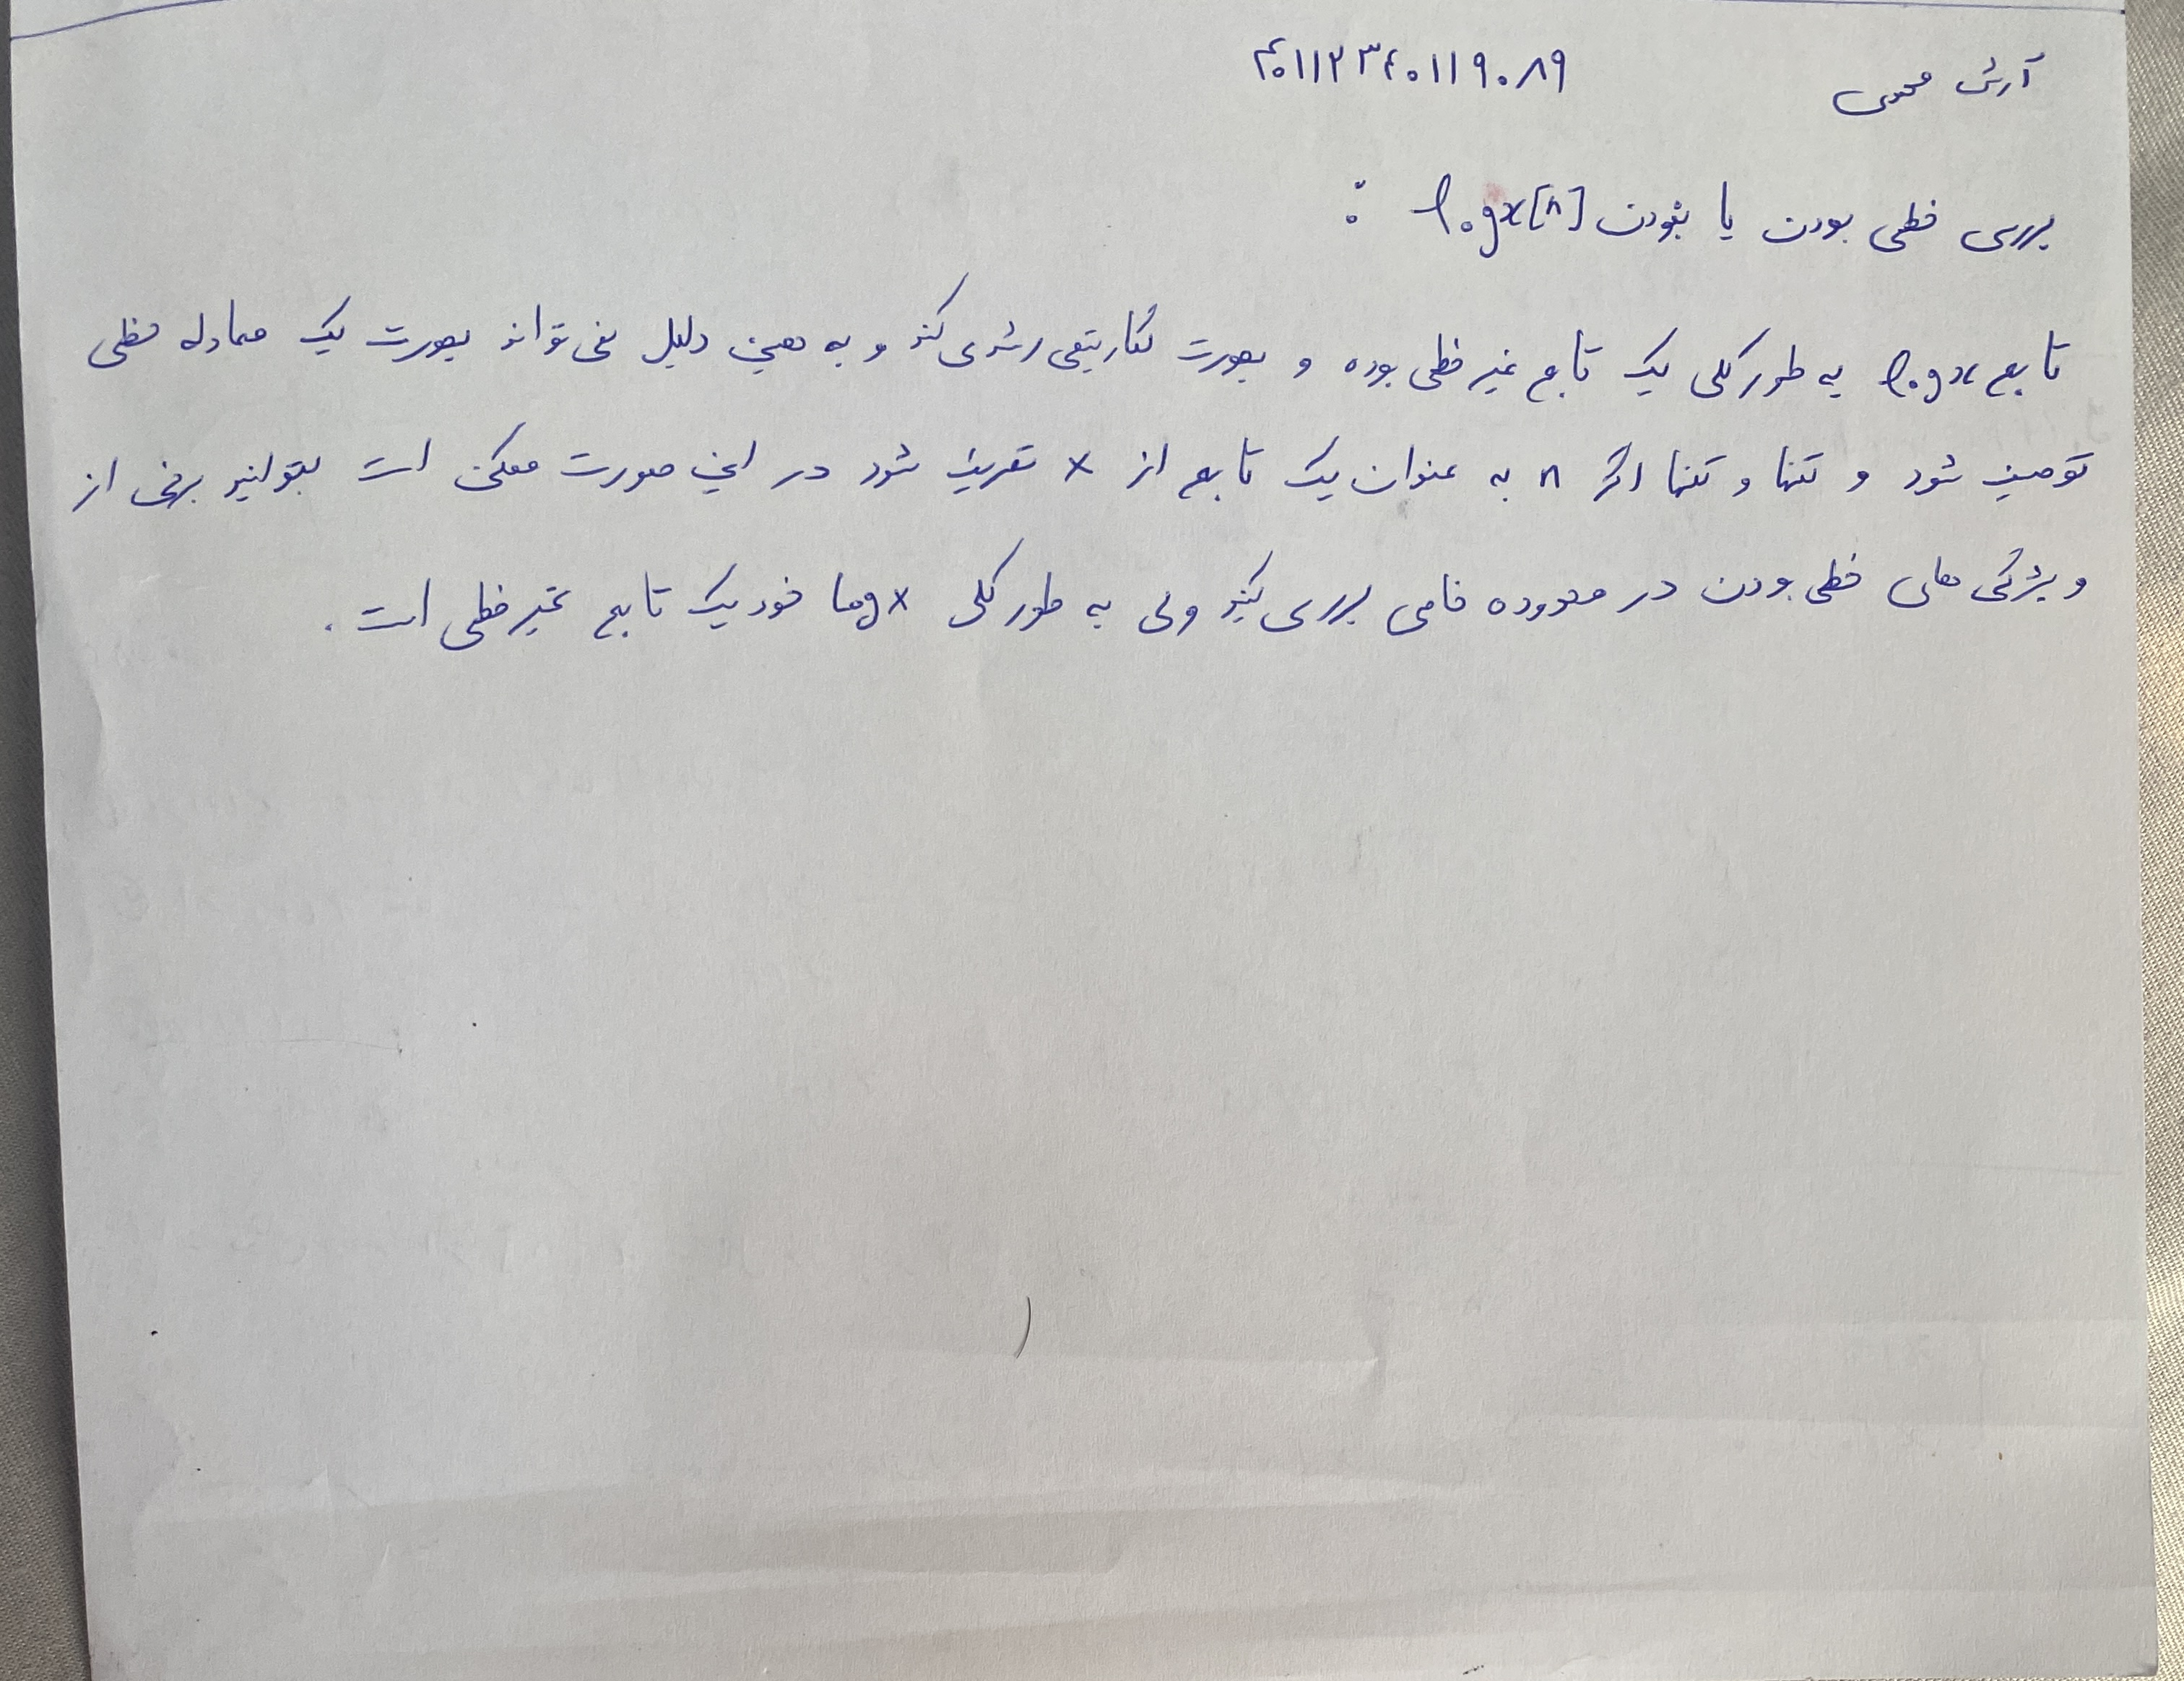 آرش محبی ۴۰۱۱۲۳۴۰۱۱۹۰۸۹
بررسی خطی بودن یا نبودن log x[n] :
تابع log x به طور کلی یک تابع غیر خطی بوده و بصورت لگاریتمی رشد می کند و به همین دلیل نمی تواند بصورت یک معادله خطی
توصیف شود و تنها و تنها اگر n به عنوان یک تابع از x تعریف شود در این صورت ممکن است بتوانید برخی از
ویژگی های خطی بودن در محدوده خاصی بررسی کنید ولی به طور کلی log x خود یک تابع غیر خطی است .